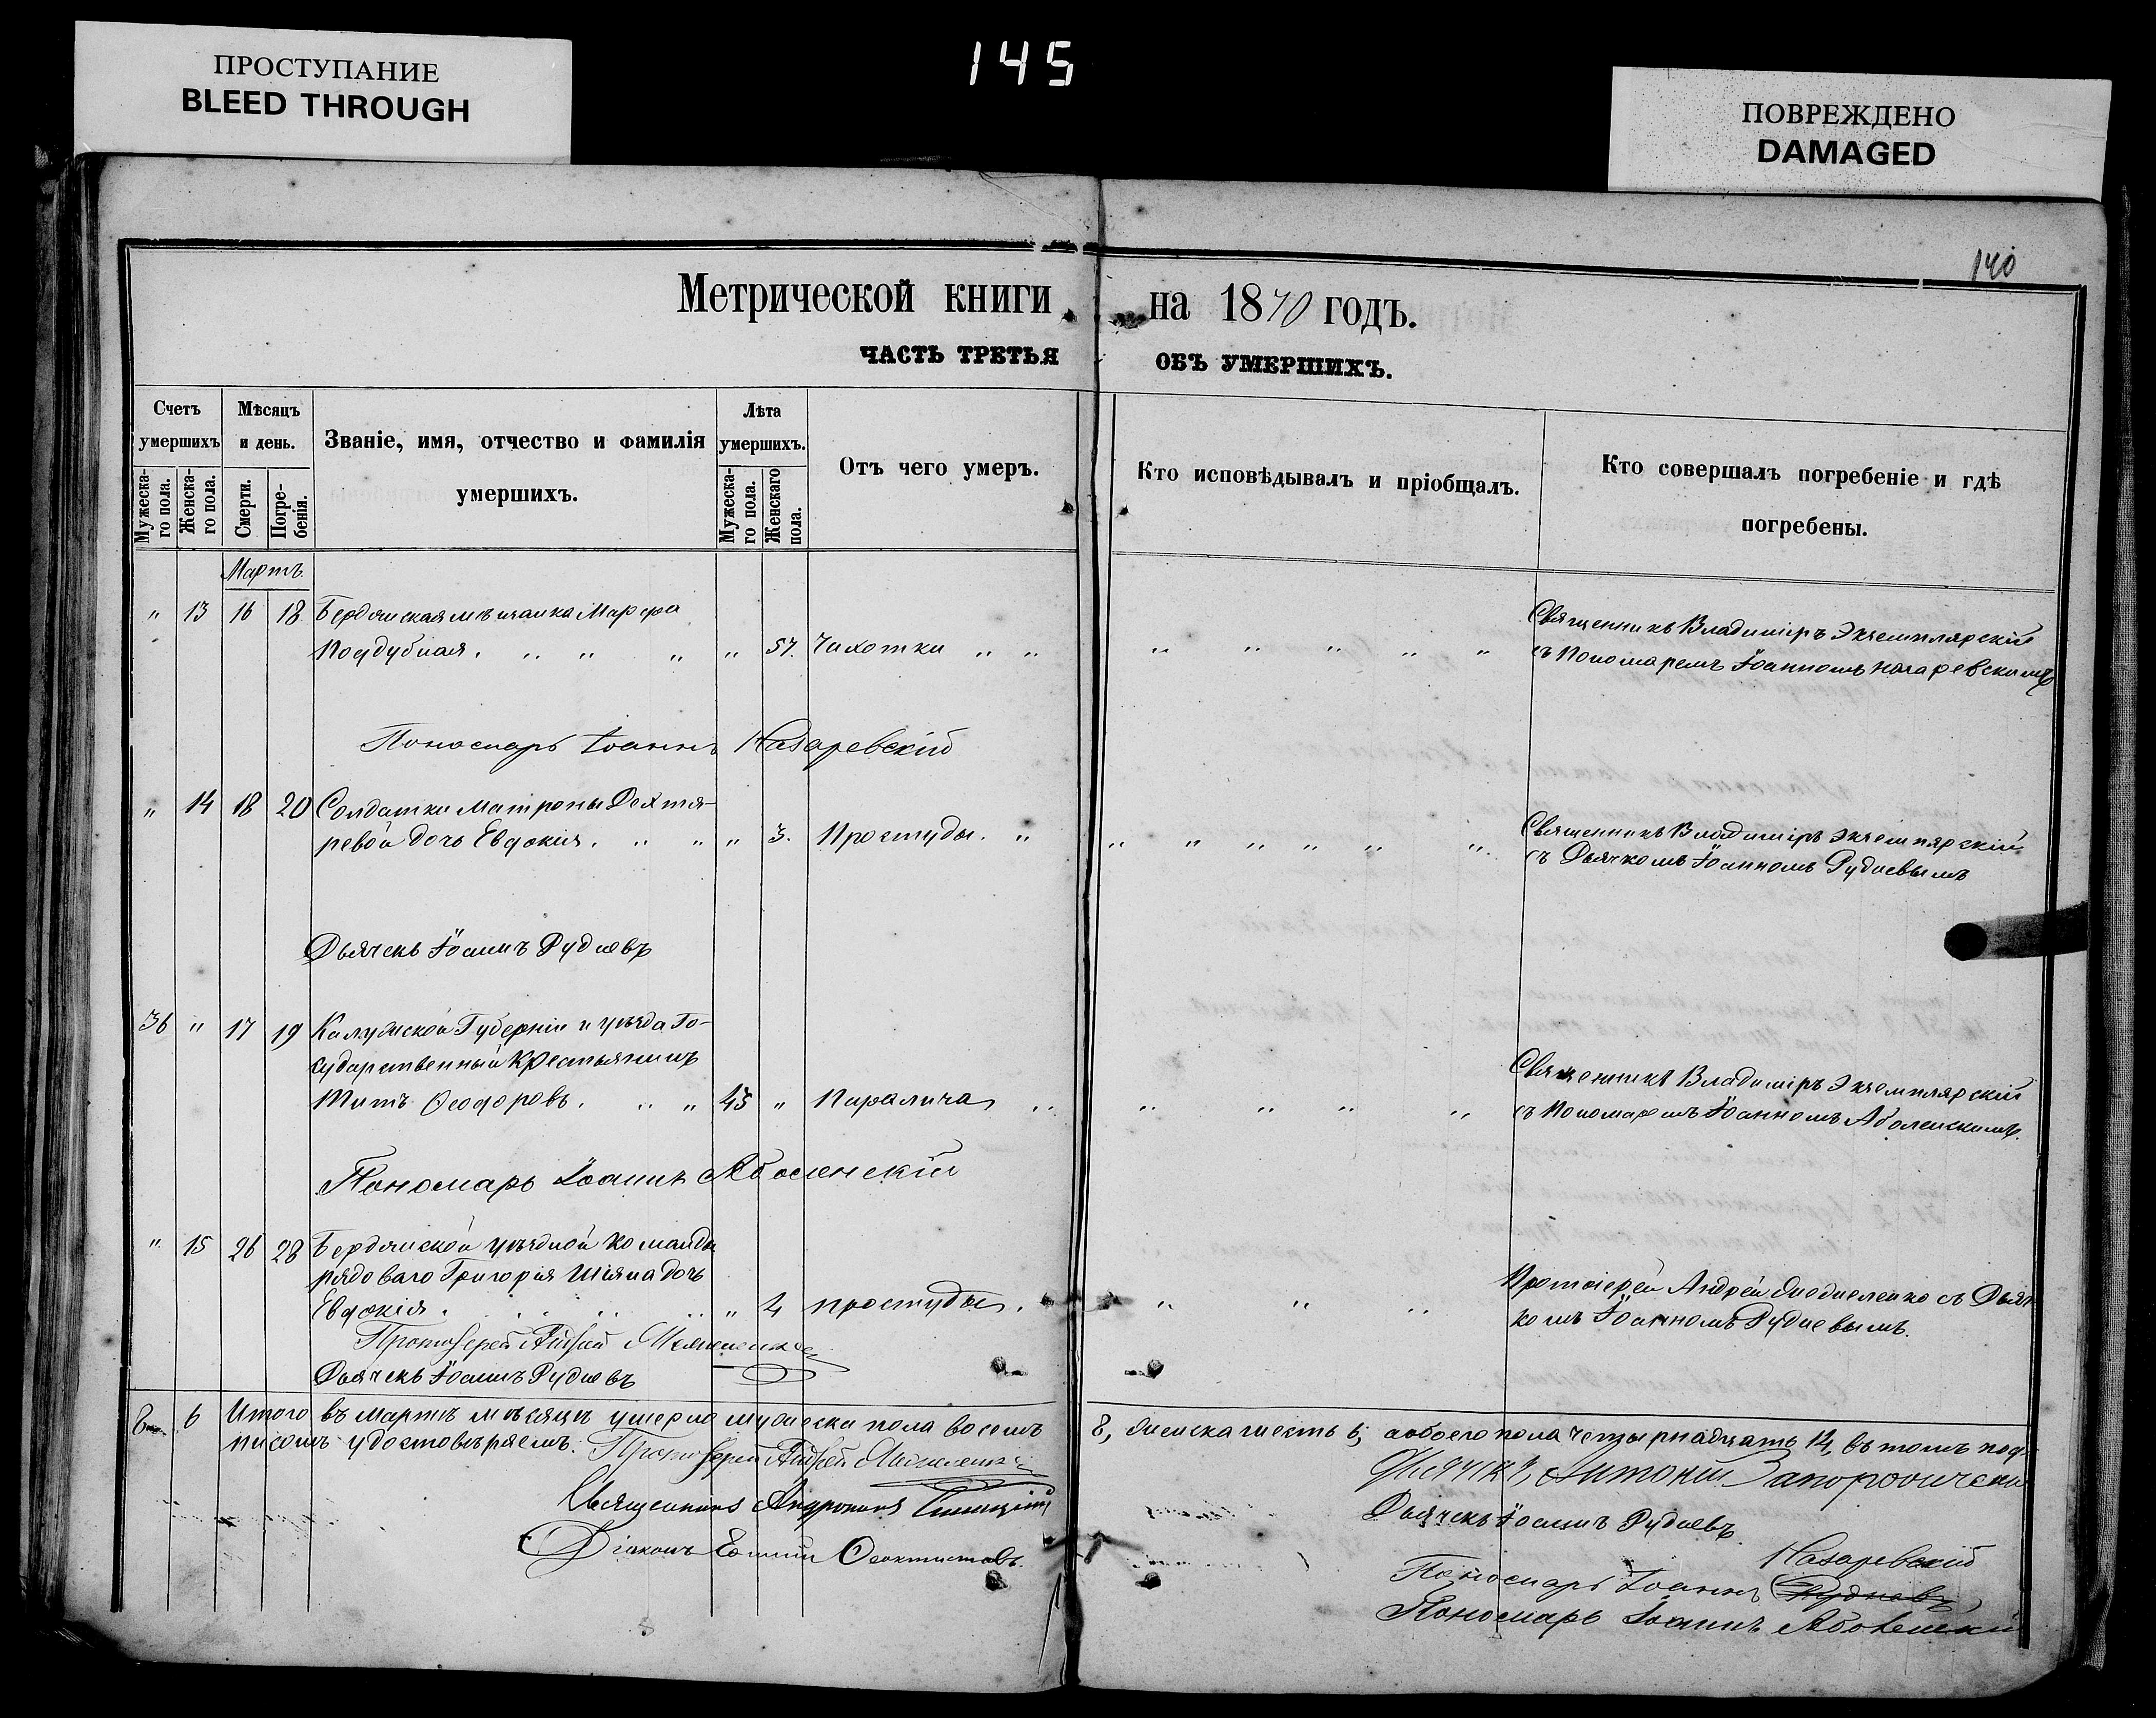 ПРОСТУПАНИЕ
BLEED THROUGH
145
ПОВРЕЖДЕНО
DAMAGED
140
Метрической книги на 1870 годъ.
ЧАСТЬ ТРЕТЬЯ ОБЪ УМЕРШИХЪ.
Счетъ умершихъ
Мужеска-го пола.
Женска-го пола.
Мѣсяцъ и день.
Смерти.
Погре-бенія.
Званіе, имя, отчество и фамилія
умершихъ.
Лѣта умершихъ.
Мужеска-го пола.
Женскаго пола.
Отъ чего умеръ.
Кто исповѣдывалъ и пріобщалъ.
Кто совершалъ погребеніе и гдѣ
погребены.
Мартъ.
" 13 16 18 Бердянская мѣщанка Марфа
Поддубная. " 57. Чахотки
Священникъ Владиміръ Экземплярскій
съ Пономаремъ Іоанномъ Назаревскимъ
Пономарь Іоаннъ Назаревскій
" 14 18 20 Солдатки Матроны Дехтя-
ревой дочь Евдокія. " 3. Простуды.
Священникъ Владиміръ Экземплярскій
съ Дьячкомъ Іоанномъ Рудневымъ
Дьячекъ Іоаннъ Рудневъ
36 " 17 19 Калужской Губерніи и уѣзда Го-
сударственный крестьянинъ
Титъ Ѳеодоровъ. 45 " Паралича
Священникъ Владиміръ Экземплярскій
съ Пономаремъ Іоанномъ Аболенскимъ.
Пономарь Іоаннъ Аболенскій
" 15 26 28 Бердянской уѣздной команды
рядоваго Григорія Шіяна дочь
Евдокія. " 4 простуды.
Протоіерей Андрей с Дьяч-
комъ Іоанномъ Рудневымъ.
Протоіерей Андрей
Дьячекъ Іоаннъ Рудневъ
8 6 Итого въ мартѣ мѣсяцѣ умерло мужеска пола восемъ 8, женска шесть 6, а обоего пола четырнадцать 14, въ томъ под-
писомъ удостовѣряемъ. Протоіерей Андрей
Священникъ
Діаконъ Ѳеоктистовъ.
Антоній
Дьячекъ Іоаннъ Рудневъ
Назаревскій
Пономарь Іоаннъ Рудневъ
Пономарь Іоаннъ Аболенскій